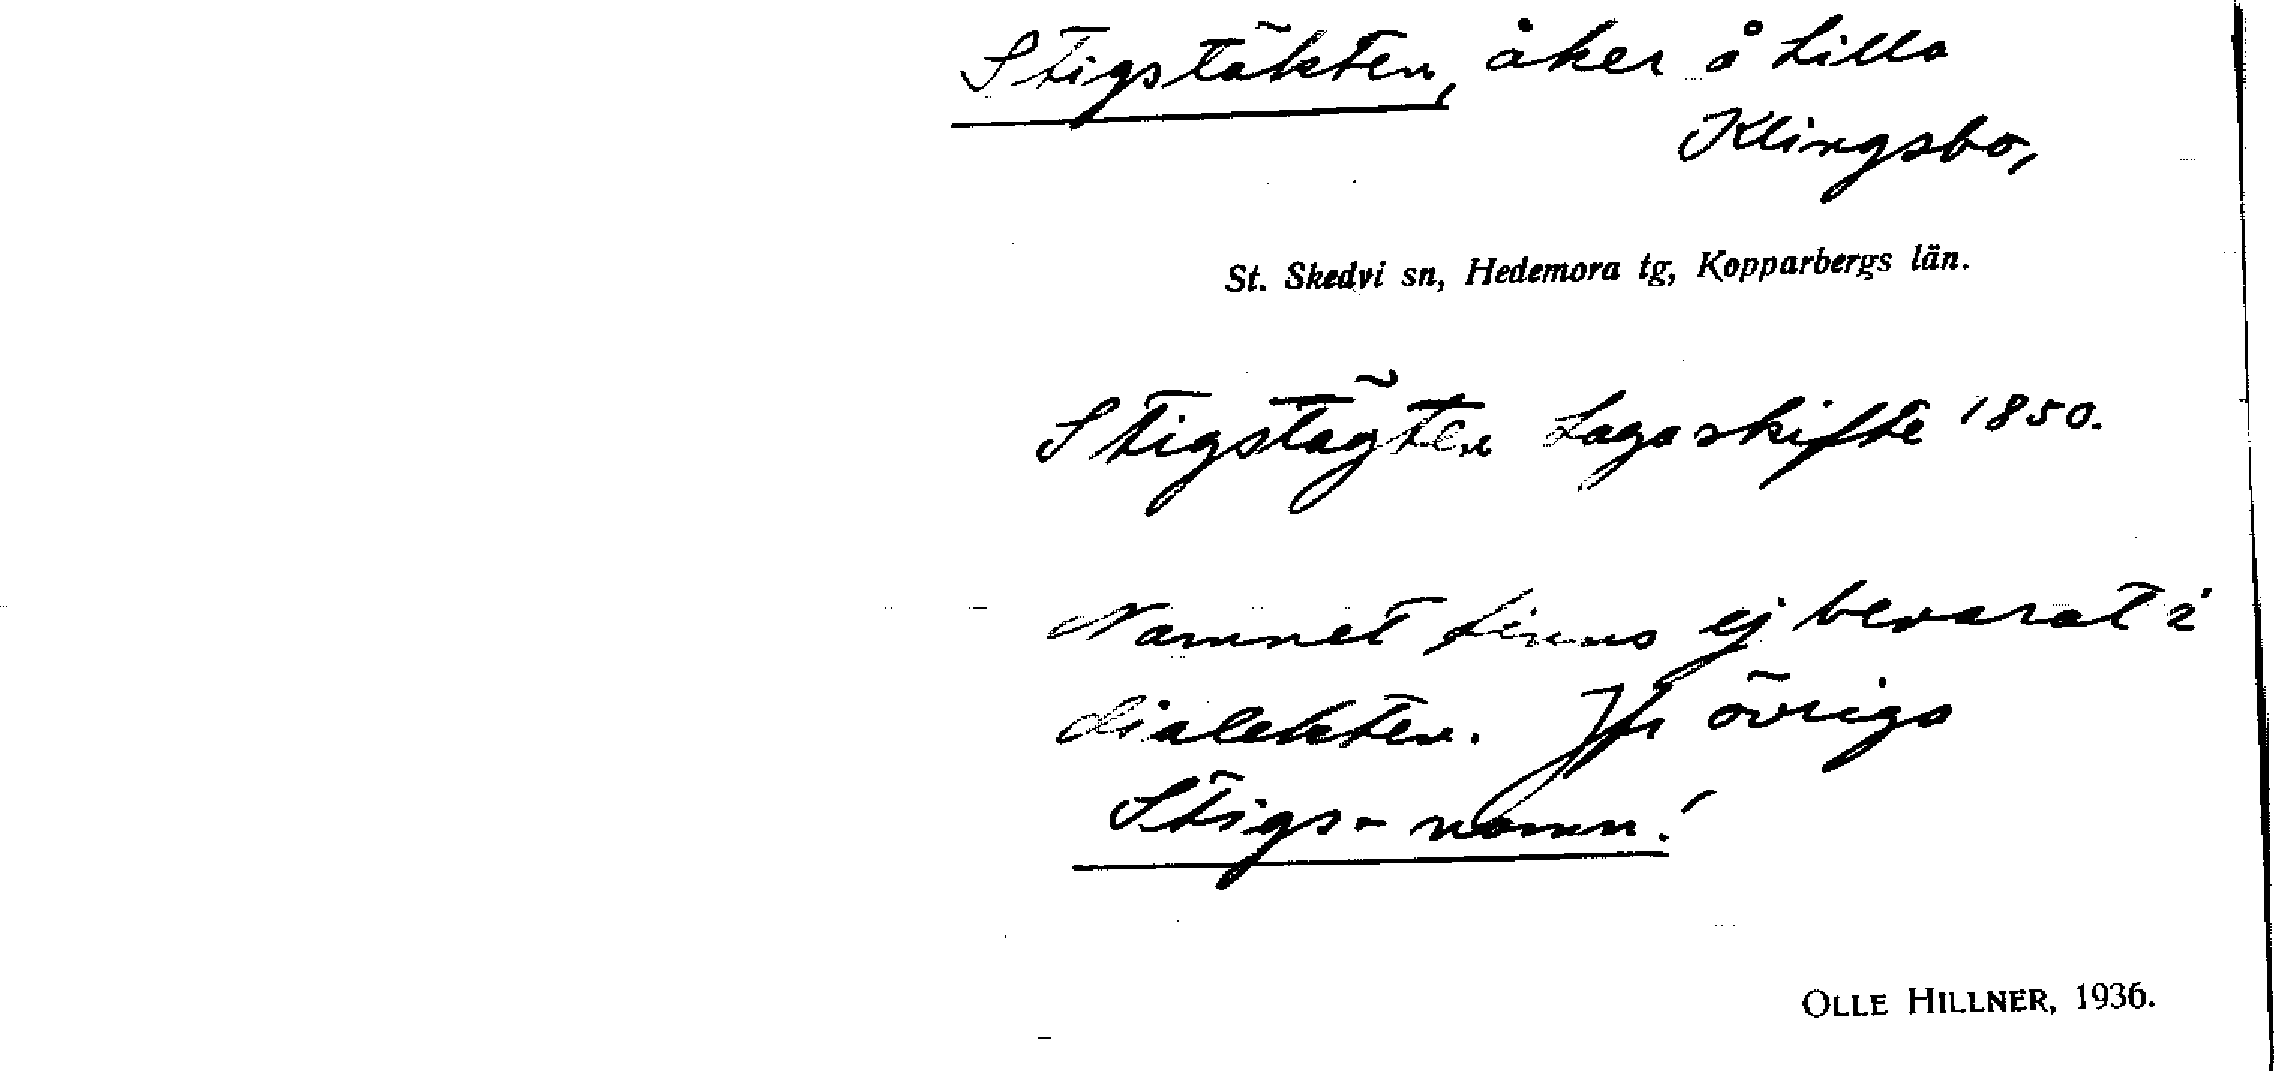 Stigstäkten, åker å Lilla
Klingsbo,
St. Skedvi sn, Hedemora tg, Kopparbergs län.
Stigstägten Laga skifte 1850.
Namnet finns ej bevarat i
dialekten. Jfr övriga
Stigs- namn!
OLLE HILLNER, 1936.